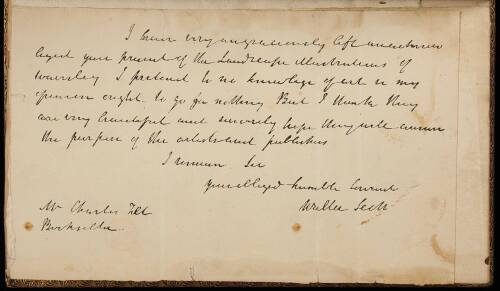 I have very ungraciously left unacknow
leged your present of the Landscape illustrations of
Waverley I pretend to no knowlege of art so my
opinion ought to go for nothing But I think they
are very beautiful and sincerely hope they will answer
the purpose of the artists and publishers
I remain Sir
your obliged humble Servant
Walter Scott
Mr Charles Tilt
Bookseller